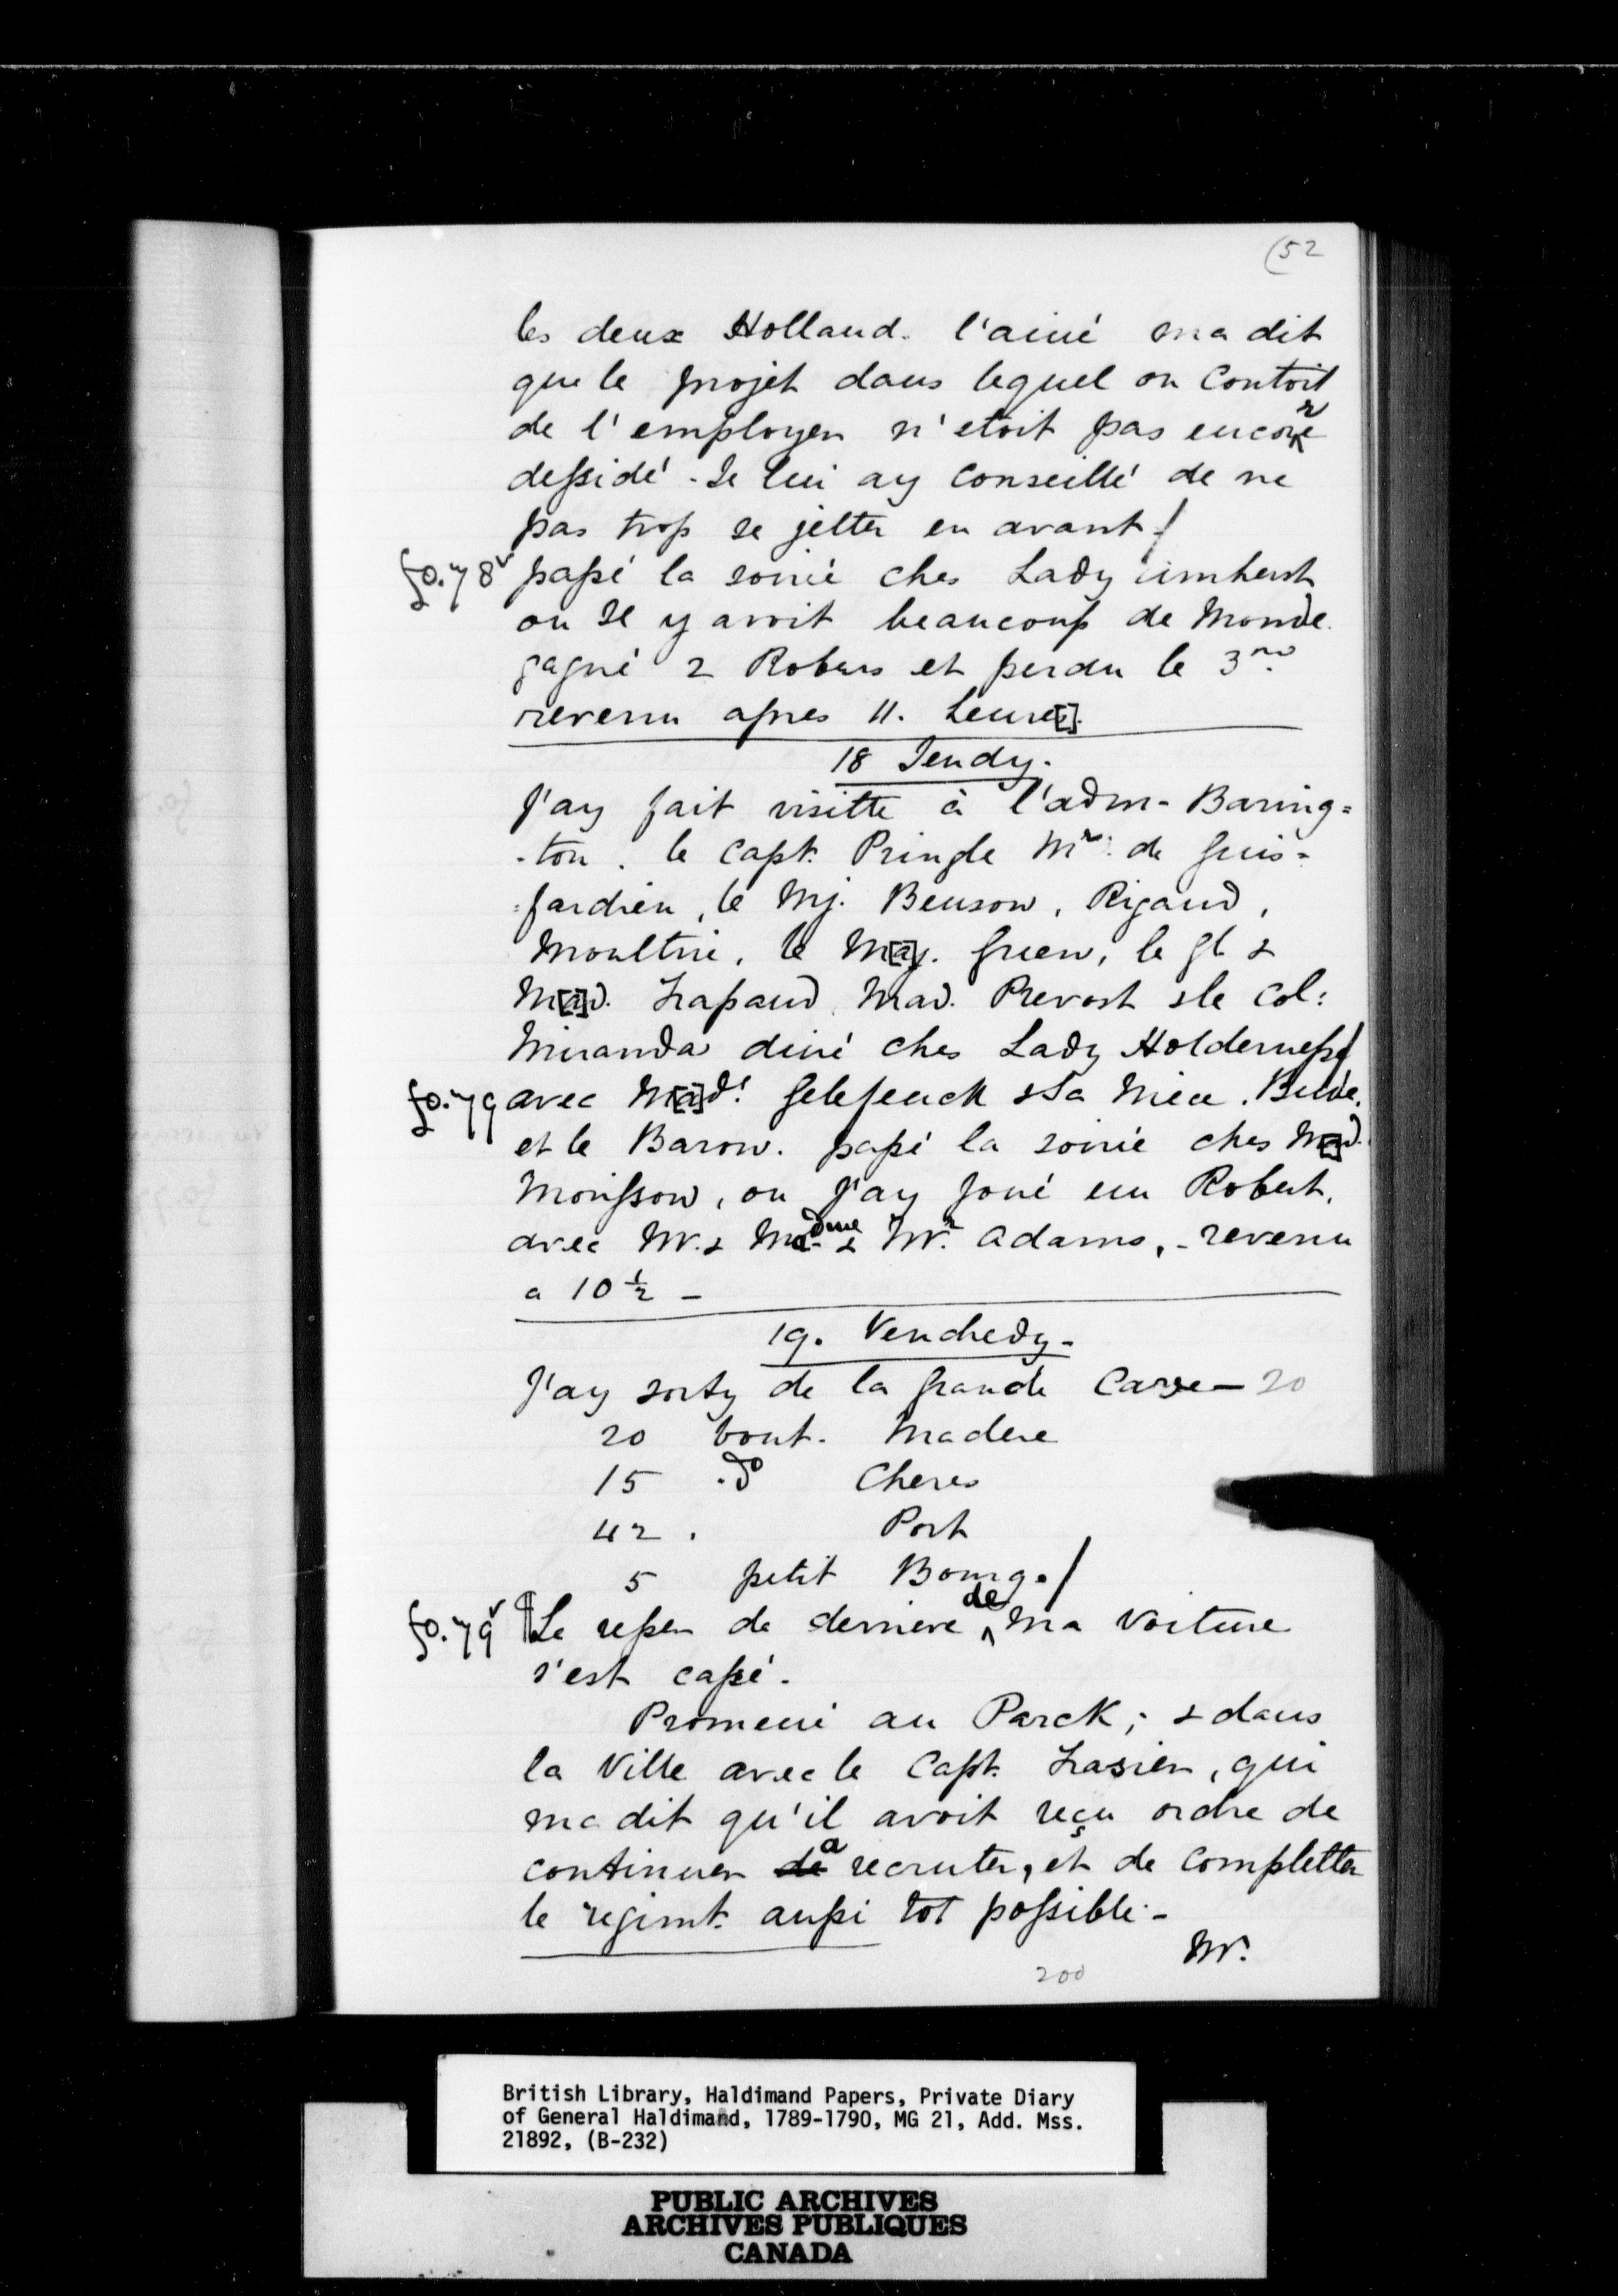 (52
les deux Holland. l'ainé ma dit
que le projet dans lequel on Contoit
de l'employer n'etoit pas encore
dessidé - Je lui ay Conseillé de ne
pas trop se jetter en avant/
fo. 78v passé la soirié ches Lady amherst
ou Il y avoit beaucoup de Monde.
gagné 2 Robers et perdu le 3me
revenu apres 11. heure[s].
18 Jeudy.
J'ay fait visitte à l'adm- Baring=
-ton. le Capt. Pringle Mr. de Guis=
=fardien, le Mj. Benson, Rigaud,
Moultrie, le M[a]j. Green, le gl &
M[a]d. Trapaud Mad. Prevost & le Col:
Miranda diné ches Lady Holderness/
fo. 79 avec M[a]d! Gelefenck & Sa Niece. Bude.
et le Baron. passé la soirié ches M[a]d.
Morisson, ou J'ay joué un Robert.
avec Mr. & Madme & Mr. Adams, - revenu
a 10 ½ -
19. Vendredy-
J'ay sorty de la grande Cave - 20
20 bout. Madere
15 .do Cheres
42 . Port
5 petit Bourg./
fo. 79v Le resser de derriere de Ma Voiture
s'est cassé.
Promené au Parck; & dans
la Ville avec le Capt. Frasier, qui
ma dit qu'il avoit reçu ordre de
continuer de a recruter, et de Completter
le regimt. aussi tot possible -
Mr.
200
British Library, Haldimand Papers, Private Diary
of General Haldimand, 1789-1790, MG 21, Add. Mss.
21892, (B-232)
PUBLIC ARCHIVES
ARCHIVES PUBLIQUES
CANADA